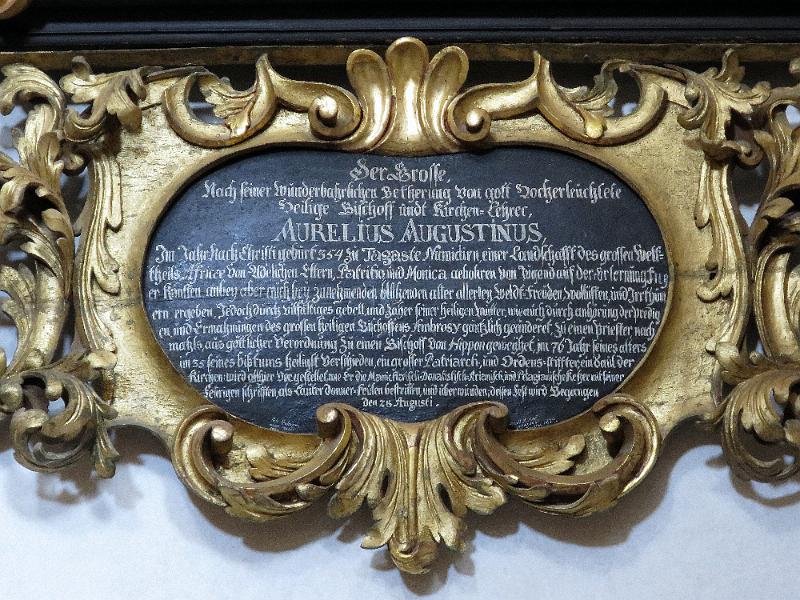 Der Grosse,
Nach seiner Wünderbahrlichen Bekherung Von gott Hocherleüchtete
Heilige Bischoff ündt Kirchen-Lehrer,
AURELIUS AUGUSTINUS,
Im Jahr Nach Christi gebürt 354 zü Tagaste Nümidien, einer Landschafft des grossen Welt-
theils Africæ Von Adelichen Eltern, Patritio und Monica gebohren Von Jügend auf der Erlernüng
er Künsten, anbey aber auch bey zunehmenden blühenden alter allerley Weldt-Freüden, Woollüsten, und Irrthüm
ern ergeben. Jedoch dürch Villfältiges gebett und Zäher seiner heiligen Mütter, wie auch dürch anhörüng der predig
en und Ermahnüngen des grossen heiligen Bischoffens Ambrosy gäntzlich geändert. Zü einen priester nach
mahls aüs göttlicher Verordnüng Zü einen Bischoff Von Hippon geweichet, im 76 Jahr seines alters
im 35 seines bistums heiligst Verschieden, ein grosser Patriarch, und Ordens-stiffter, ein daül der
Kirchen wird alhier Vorgestellet, wie Er die Manichæisch-Donatistisch-Arianisch, und Pelagianische Ketzer mit seiner
Feürigen schrifften, als Laüter donner-Keülen bestritten, und überwünden; dessen Fest wird Begangen
den 28 Augusti.